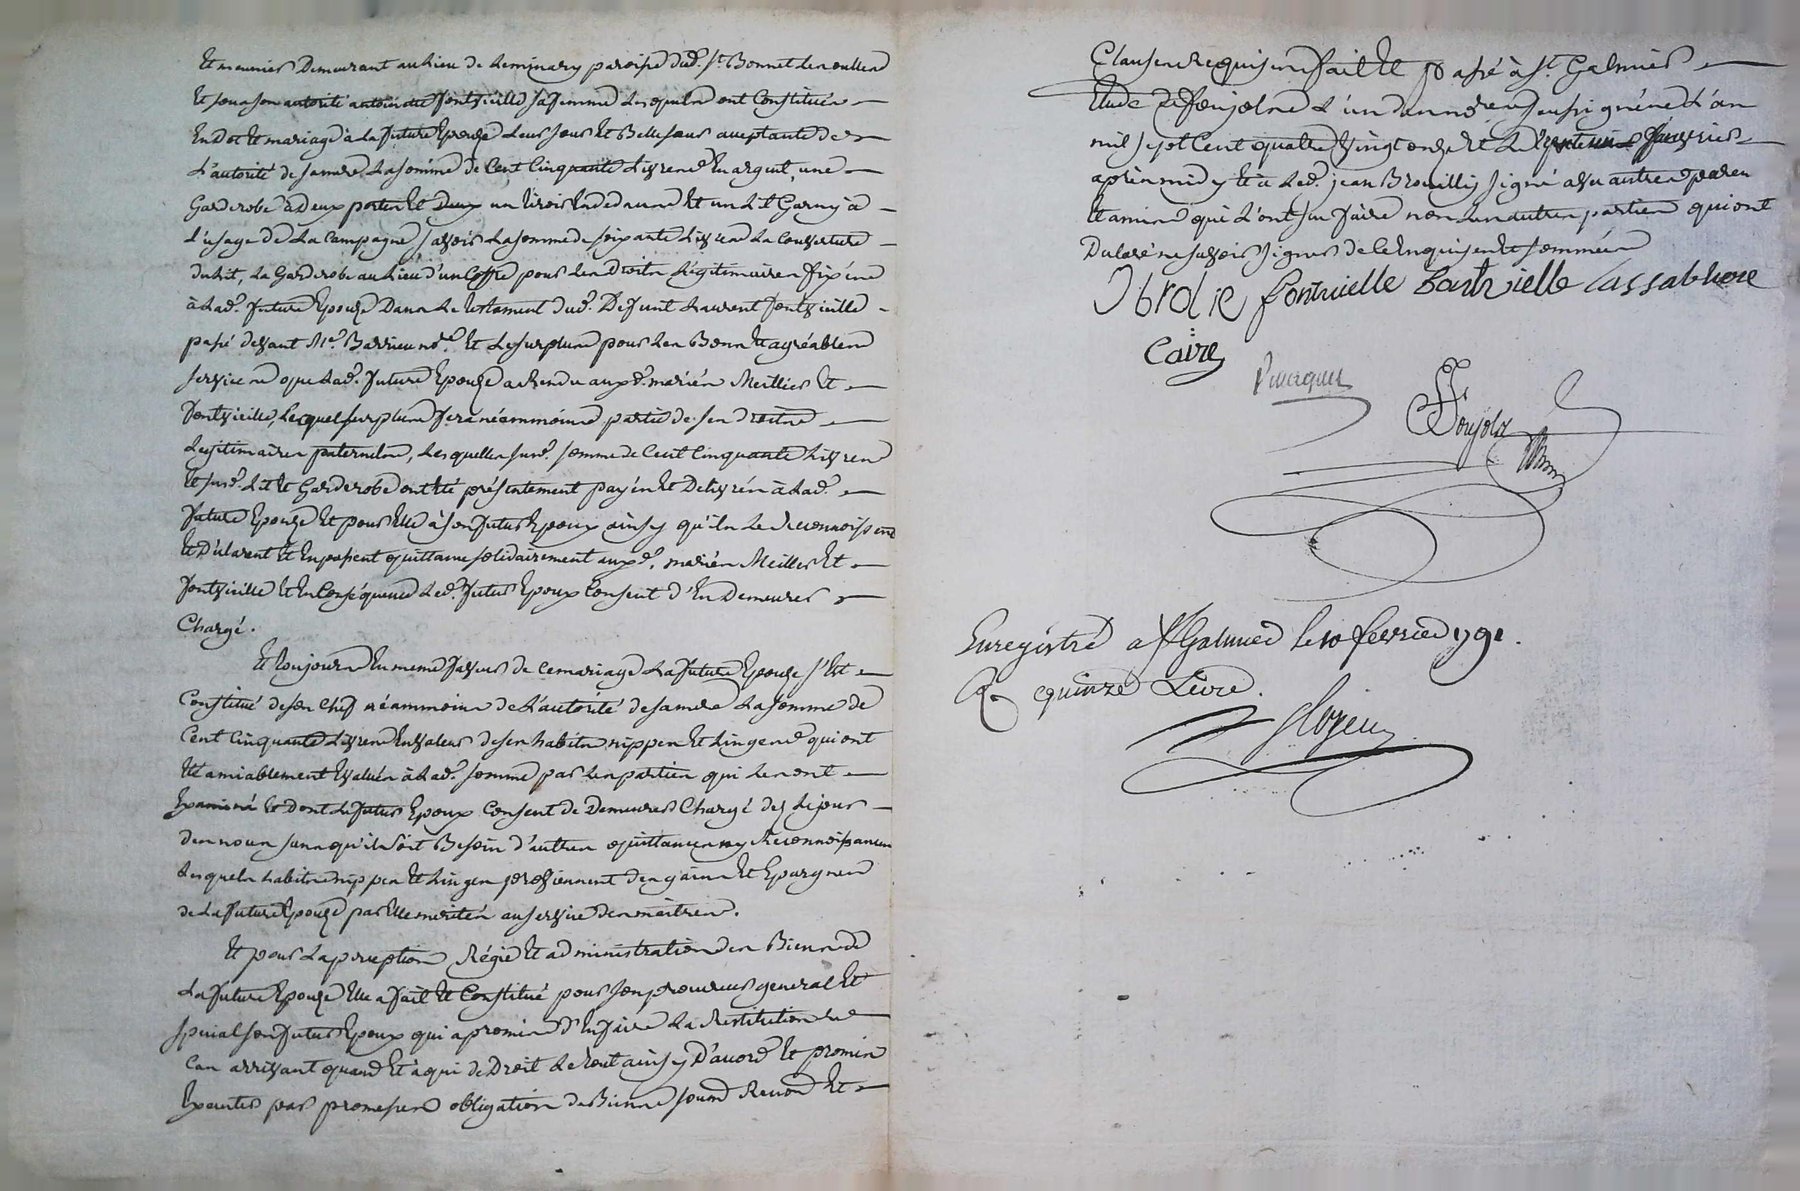 et meunier Demeurant au Lieu de Leminary paroisse dud. St. Bonnet Les oulles
Et sous son autorité antoinette fontvieille sa femme Lesquels ont Constitués
En Dot et mariage à La future Epouze Leur sœur Et Belle sœur acceptante de
L'autorité de sa mere La somme de Cent Cinquante Livres En argent, une
Garderobe à Deux portes Et Deux un Lit Garny à
L'usage de La Campagne, savoir La somme de soixante Livres La Couverture
du Lit, La Garderobe au Lieu d'un Coffre pour Les Droits Légitimaires fixés
à Lad. future Epouze Dans Le testament dud. Defunt Laurent fontvieille
passé devant Me. Barrieu nore. Et Le surplus pour Les Bons Et agréables
services que Lad. future Epouze a rendu auxd. mariés Meillier Et
fontvieille, Lequel surplus fera néammoins partie de ses droits
Legitimaires paternels, Lesquelles susd. somme de Cent Cinquante Livres
Et susd. Lit Et Garderobe ont été présentement payés Et Delivrés à Lad.
future Epouze Et pour Elle à son futur Epoux ainsy qu'ils Le reconnoissent
Et Déclarent Et En passent quittance solidairement auxd. mariés Meillier Et
fontvieille Et En Conséquence Led. futur Epoux Consent d'En Demeurer
Chargé.
Et toujours En meme faveur de ce mariage La future Epouze s'Est
Constitué de son Chef néammoins de L'autorité de sa mere La somme de
Cent Cinquante Livres En valeur de ses habits nippes Et Linges qui ont
Eté amiablement Evalués à Lad. somme par Les parties qui Les ont
Examiné Et Dont Le futur Epoux Consent de Demeurer Chargé dez Le jour
des noces sans qu'il soit Besoin d'autres quittances ny Reconnoissances
Lesquels habits nippes Et Linges proviennent des gains Et Epargnes
de La future Epouze par Elle merités au service des maitres.
Et pour La perception Régie Et administration des Biens de
La future Epouze Elle a fait Et Constitué pour son procureur general Et
special son futur Epoux qui a promis d'En faire La Restitution Le
Cas arrivant quand Et à qui de Droit Le tout ainsy D'accord Et promis
Executer par promesses obligation de Biens soumd Renond Et
Clauses Requises fait Et passé à St. Galmier
Etude De foujols L'un des nores. soussignés L'an
mil sept Cent quatre vingt onze Et Le janvier
après midy Et a Led. jean Brouilly signé avec autres paren
Et amis qui L'ont su faire non Les autres parties qui ont
Declaré ne savoir signer de Ce Enquises Et sommées
fontvielle fontvielle Lassabliere
Caire
foujols
Enregistré a St Galmier le 10 fevrier 1791.
R quinze Livre.